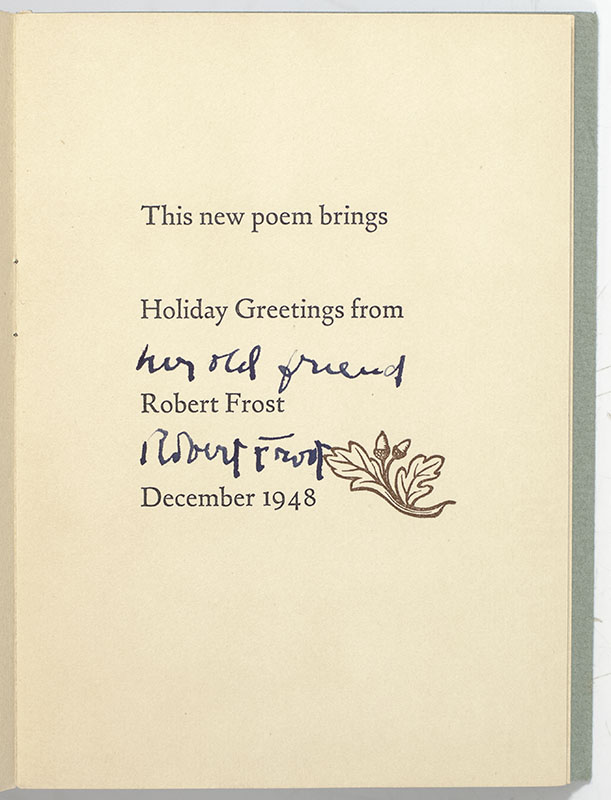 This new poem brings
Holiday Greetings from
her old friend
Robert Frost
Robert Frost
December 1948